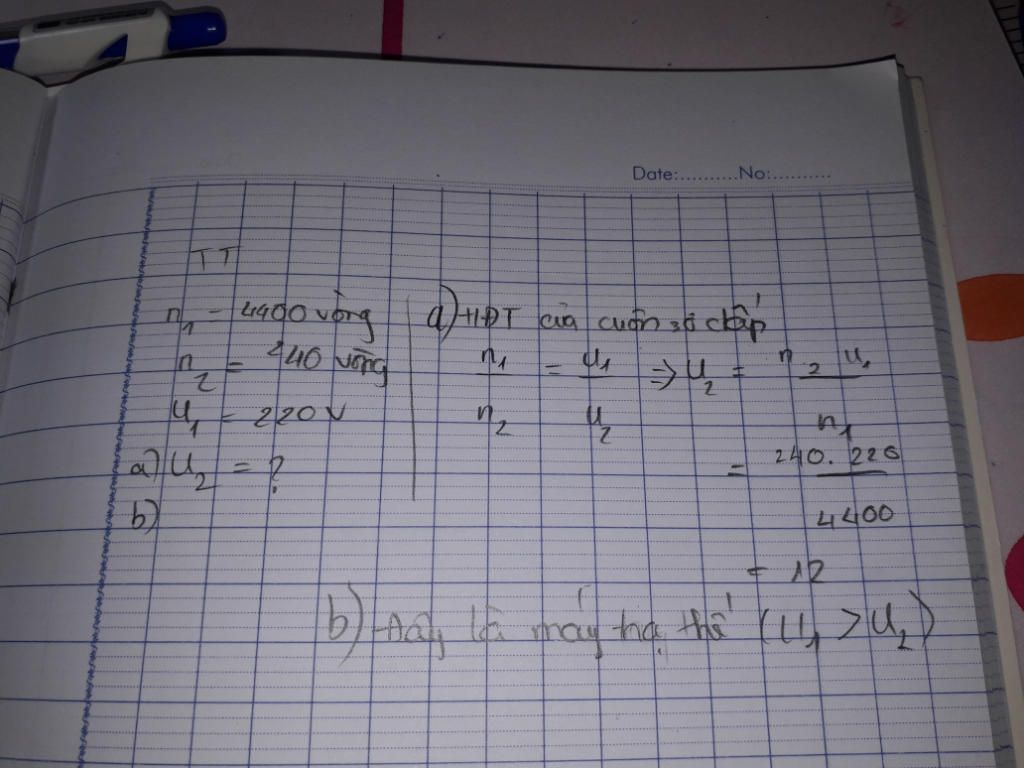 Date:..........No:..........
TT
n1 = 4400 vòng
n2 = 240 vòng
U1 = 220 V
a) U2 = ?
b)
a) HĐT của cuộn sơ cấp
n1/n2 = U1/U2 => U2 = n2 U1/n1
= 240. 220/4400
= 12
b) Đây là máy hạ thế (U1 > U2)